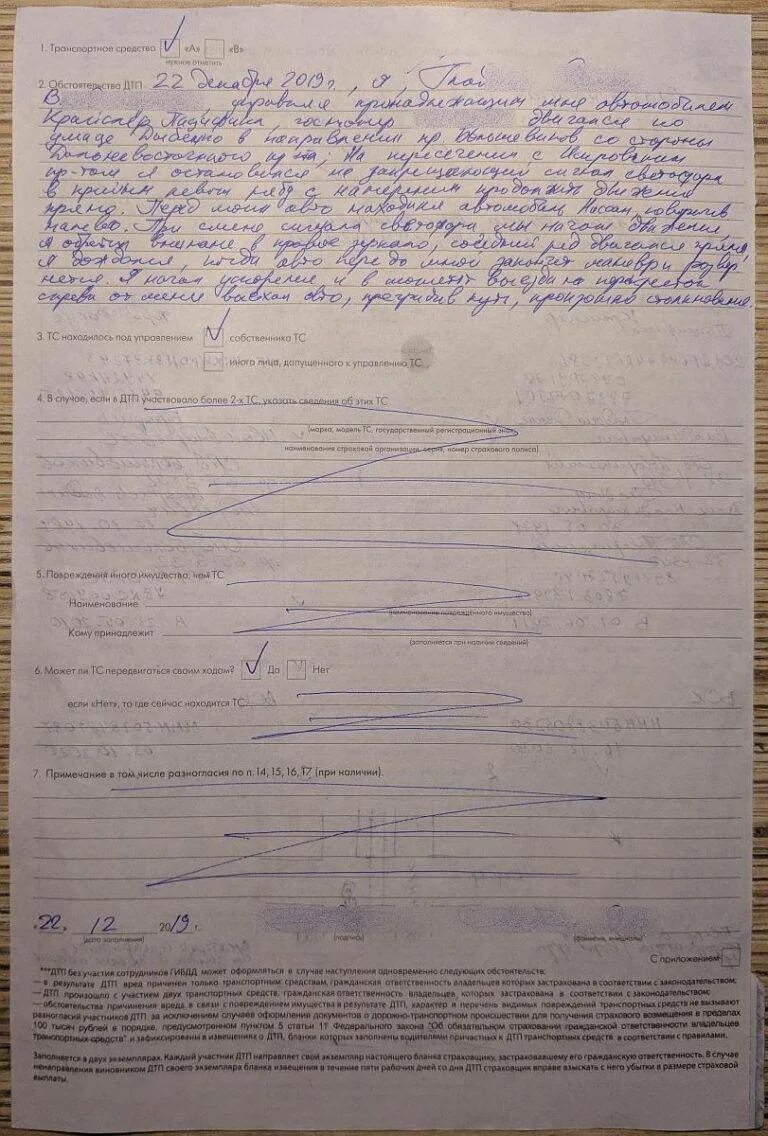 1. Транспортное средство «А» «В»
нужное отметить
2. Обстоятельства ДТП 22 декабря 2019 г., я,
В управляя принадлежащим мне автомобилем
Крайслер Пацифика, госномер двигался по
улице Дыбенко в направлении пр. Большевиков со стороны
Дальневосточного пр-та; На пересечении с Искровским
пр-том я остановился на запрещающий сигнал светофора
в крайнем левом ряду с намерением продолжить движение
прямо. Перед моим авто находился автомобиль Ниссан,
налево. При смене сигнала светофора мы начали движение
Я обратил внимание в правое зеркало, соседний ряд двигался прямо,
Я дождался, когда авто передо мной закончит маневр и
нется. Я начал ускорение и в момент выезда на перекресток
справа от меня выехал авто, преградив путь, произошло столкновение.
3. ТС находилось под управлением собственника ТС
иного лица, допущенного к управлению ТС
4. В случае, если в ДТП участвовало более 2-х ТС, указать сведения об этих ТС
(марка, модель ТС, государственный регистрационный знак)
наименования страховой организации, серия, номер страхового полиса)
5. Повреждения иного имущества, чем ТС
Наименование
(наименование повреждённого имущества)
Кому принадлежит
(заполняется при наличии сведений)
6. Может ли ТС передвигаться своим ходом? Да Нет
если «Нет», то где сейчас находится ТС
7. Примечание в том числе разногласия по п.14, 15, 16, 17 (при наличии).
«22» 12 2019 г.
(дата заполнения) (подпись) (фамилия, инициалы)
С приложением
***ДТП без участия сотрудников ГИБДД может оформляться в случае наступления одновременно следующих обстоятельств:
— в результате ДТП вред причинен только транспортным средствам, гражданская ответственность владельцев которых застрахована в соответствии с законодательством;
— ДТП произошло с участием двух транспортных средств, гражданская ответственность владельцев, которых застрахована в соответствии с законодательством;
— обстоятельства причинения вреда в связи с повреждением имущества в результате ДТП, характер и перечень видимых повреждений транспортных средств не вызывают
разногласий участников ДТП за исключением случаев оформления документов о дорожно-транспортном происшествии для получения страхового возмещения в пределах
100 тысяч рублей в порядке, предусмотренном пунктом 5 статьи 11¹ Федерального закона "Об обязательном страховании гражданской ответственности владельцев
транспортных средств" и зафиксированы в извещениях о ДТП, бланки которых заполнены водителями причастных к ДТП транспортных средств в соответствии с правилами.
Заполняется в двух экземплярах. Каждый участник ДТП направляет свой экземпляр настоящего бланка страховщику, застраховавшему его гражданскую ответственность. В случае
ненаправления виновником ДТП своего экземпляра бланка извещения в течение пяти рабочих дней со дня ДТП страховщик вправе взыскать с него убытки в размере страховой
выплаты.